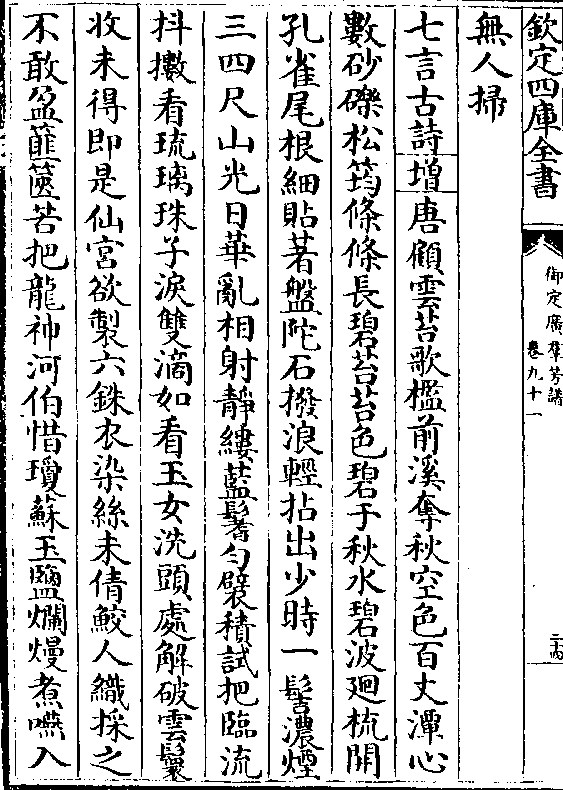 欽定四庫全書
御定廣羣芳譜
卷九十一
二十四
無人掃
七言古詩增唐顧雲苔歌檻前溪奪秋空色百丈潭心
數砂礫松筠條條長碧苔苔色碧于秋水碧波廻梳開
孔雀尾根細貼著盤陀石撥浪輕拈出少時一髻濃煙
三四尺山光日華亂相射靜縷藍鬐勻襞積試把臨流
抖擻看琉璃珠子淚雙滴如看玉女洗頭處解破雲鬟
收未得即是仙宮欲製六銖衣染絲未倩鮫人織採之
不敢盈筐篋苦把龍神河伯惜瓊蘇玉鹽爛熳煮嚥入